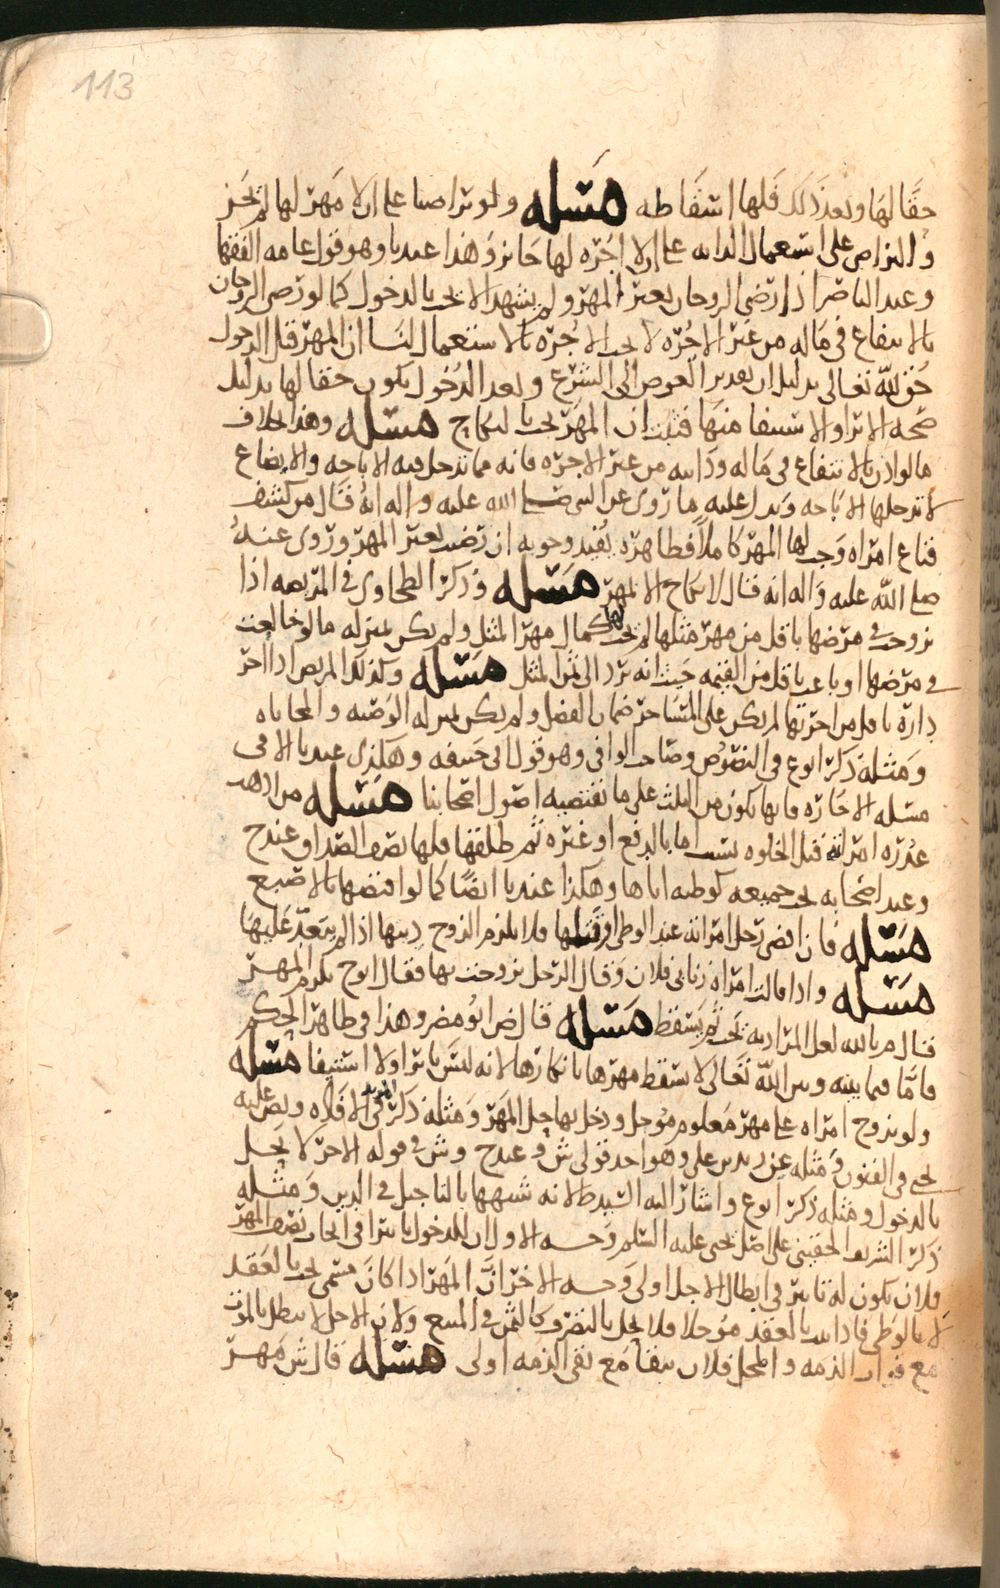 113
حقا لها وبعد ذلك فلها اسقاطه مسله ولو تراضيا على ان لا مهر لها لم يجز
والتراضي على استعمال الدابه على ان لا اجره لها جايز وهذا عندنا وهو قول عامه الفقها
وعند الناصر اذا رضي الزوجان بغير المهر ولم يشهد الا يجب بالدخول كما لو رضي الزوجان
بالانتفاع في ماله من غير الاجره لا يجب الاجره بالاستعمال لنا ان المهر قبل الدخول
حق لله تعالى بدليل ان تقدير العوض الى الشرع وبعد الدخول يكون حقا لها بدليل
صحه الابرا والاستيفا منها فثبت ان المهر يجب بالنكاح مسله وهذا بخلاف
ما لو اذن بالانتفاع في ماله ودابته من غير الاجره فانه مما تدخل فيه الاباحه والابضاع
لا تدخلها الاباحه ويدل عليه ما روي عن النبي صلى الله عليه واله انه قال من كشف
قناع امراه وجب لها المهر كاملا فظاهره يفيد وجوبه ان رضيت بغير المهر وروي عنه
صلى الله عليه واله انه قال لا نكاح الا بمهر مسله وذكر الطحاوي في المريضه اذا
تزوجت في مرضها باقل من مهر مثلها لم يجب لها كمال مهر المثل ولم يكن بمنزله ما لو خالعت
في مرضها او باعت باقل من القيمه حيث انه يرد الى ثمن المثل مسله وكذلك المريض اذا اجر
داره باقل من اجرتها لم يكن على المستاجر ضمان الفضل ولم يكن بمنزله الوصيه والمحاباه
ومثله ذكر ابوع في النصوص وصاحب الوافي وهو قول ابي حنيفه وهكذى عندنا الا في
مسله الاجاره فانها تكون من الثلث على ما تقتضيه اصول اصحابنا مسله من اذهب
عذره امراته قبل الخلوه اما بالدفع او غيره ثم طلقها فلها نصف الصداق عند ح
وعند اصحابه يجب جميعه كوطيه اياها وهكذا عندنا ايضا كما لو افتضها بالاصبع
مسله فان افضى رجل امراته عند الوطي او قتلها فلا يلزم الزوج ديتها اذا لم يتعد عليها
مسله واذا قالت امراه زنا بي فلان وقال الرجل تزوجت بها فقال ابوح يلزم المهر
قال م بالله لعل المراد به يجب ثم يسقط مسله قال ص ابو مضر وهذا في ظاهر الحكم
فاما فيما بينه وبين الله تعالى لا يسقط مهرها بانكارها لانه ليس بابرا ولا استيفا مسله
ولو تزوج امراه على مهر معلوم موجل ودخل بها حل المهر ومثله ذكر في الافاده ونص عليه
يحيى في الفنون ومثله عن زيد بن علي وهو احد قولي ش وعند ح وش في قوله الاخر لا يحل
بالدخول ومثله ذكر ابوع واشار اليه السيد ط لانه شبهها بالتاجيل في الدين ومثله
ذكر الشريف الحقيني على اصل يحيى عليه السلم وجه الاول ان للدخول تاثيرا في ايجاب نصف المهر
فلان يكون له تاثير في ابطال الاجل اولى وجه الاخر ان المهر اذا كان مسمى يجب بالعقد
لا بالوطي فاذا ثبت بالعقد موجلا فلا يحل بالتصرف كالثمن في المبيع ولان الاجل لا يبطل بالموت
مع فوات الذمه والمحل فلان يبقا مع بقى الذمه اولى مسله قال ش مهر